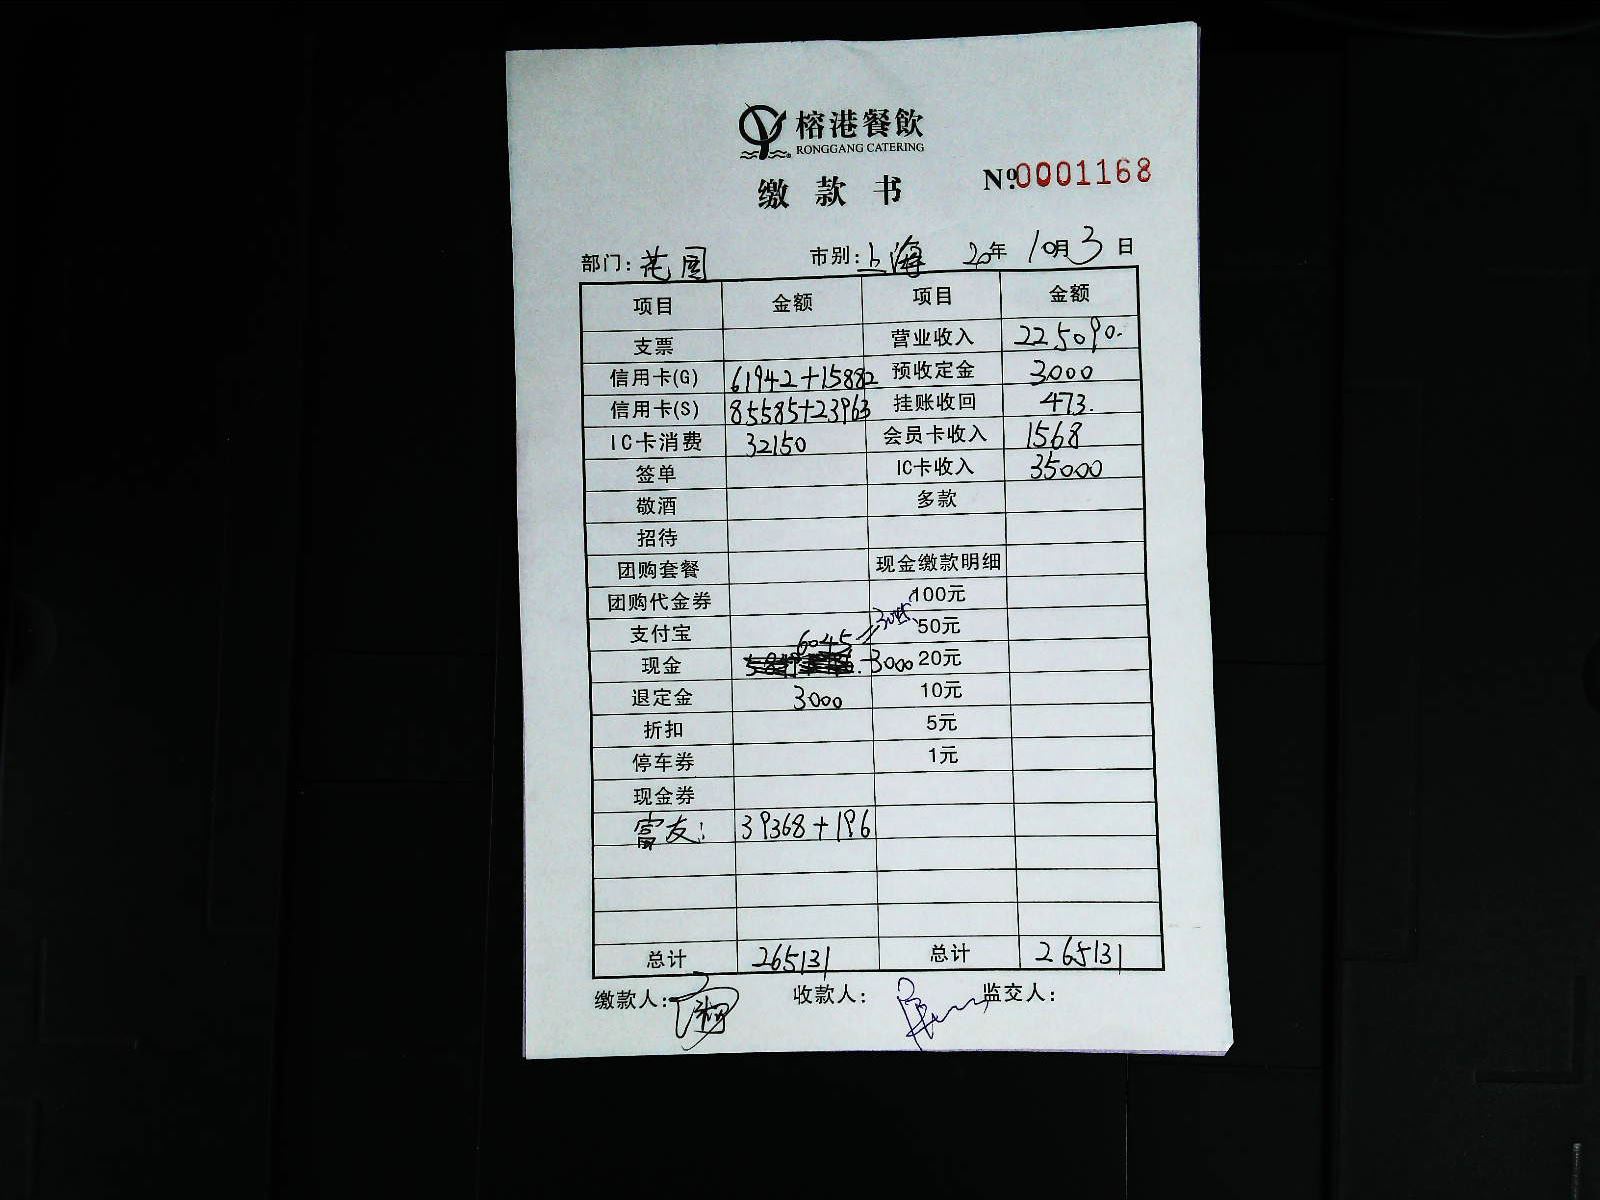 榕港餐飲
RONGGANG CATERING
缴款书 Nº.0001168
部门：花园 市别：上海 20年10月3日
项目 金额 项目 金额
支票 营业收入 225090.
信用卡(G) 61942+15882 预收定金 3000
信用卡(S) 85585+23963 挂账收回 473.
IC卡消费 32150 会员卡收入 1568
签单 IC卡收入 35000
敬酒 多款
招待
团购套餐 现金缴款明细
团购代金券 100元
支付宝 50元
6045 = 3045
现金 -3000 20元
退定金 3000 10元
折扣 5元
停车券 1元
现金券
富友： 39368+196
总计 265131 总计 265131
缴款人： 收款人： 监交人：